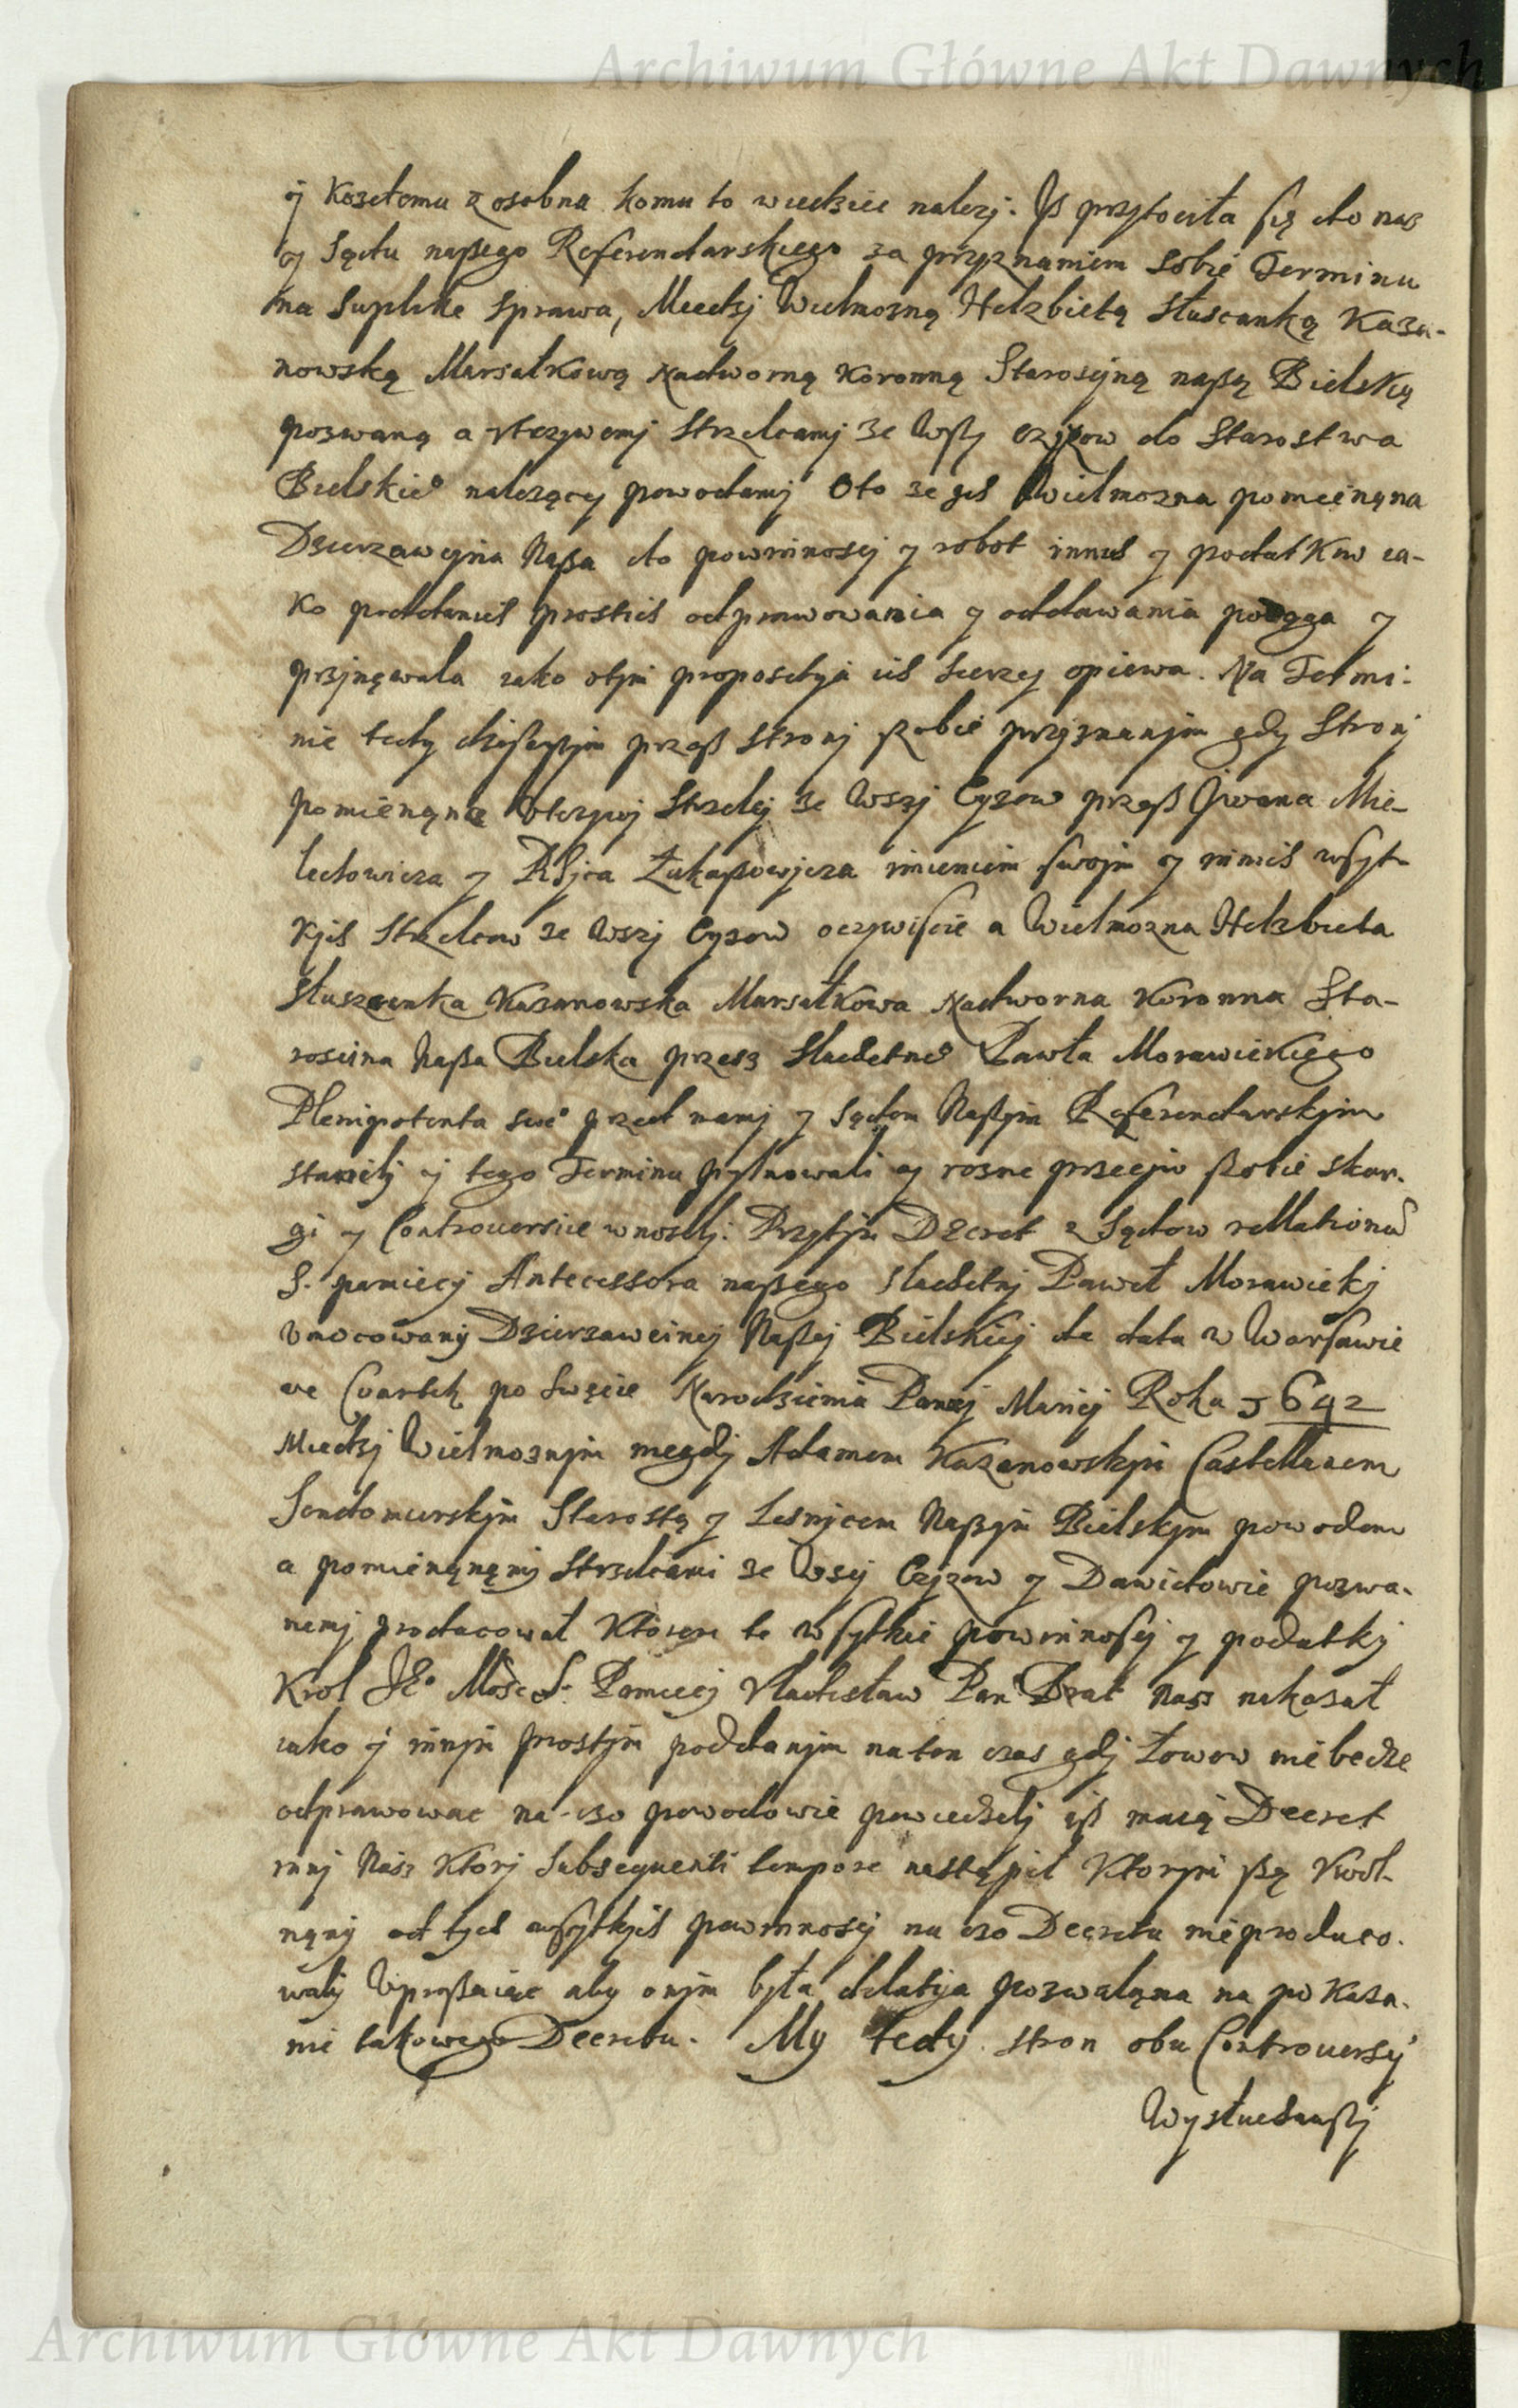 Archiwum Główne Akt Dawnych
ӱ Kozdemu z osobna komu to wiedziec nalezj. Iß przytocila się do nas
y Sądu naßego Referendarskiego za przyznaniem sobie Terminu
na Suplike sprawa, Miedzj Wielmozną Helzbietą Słuscanką Kaza-
nowską Marsałkową Nadworną Koronną Starosciną naßą Bielską
pozwaną a vtczywemj Strzelcamj ze Wsy Czyzow do Starostwa
Bielskieo nalezący powodamj Oto ze ich Wielmozna pomieniąna
Dzierzawcyna Naßa do powinnoscj y robot innich y podatkow ia-
ko poddanich prostich odprawowania y oddawania pociąga y
przjnęwala iako otjm propositya ich sierzey opiewa. Na Termi-
nie tedy dzisieyßjm przeß Stronj ßobie przyznanjm gdy Stronj
pomieniąne Vtczywj Strzelcj ze Wszj Cyzow przeß Jwana Mie-
lectowicza y Łukaßowjcza imieniem swojm y innich wsyt-
kjch Strzelcow ze Wszj Cyzow oczywiscie a Wielmozna Helzbieta
Słuszcanka Kazanowska Marsałkowa Nadworna Koronna Sta-
roscina Naßa Bielska przesz Slachetneo Pawła Morawickiego
Plenipotenta sweo przed namj y Sądem Naßym Referendarskjm
stanelj ӱ tego Terminu pylnowali y rozne przecjw ßobie skar-
gi y Controuersie wnoslj. Przytjm Decret z Sądow rellationum
S. pamiecj Antecessora naßego Slachetnj Paweł Morawickj
Vmocowanӱ Dzierzawcinej Naßej Bielskiej de data w Warsawie
we Cwartek po Swięcie Narodzienia Panny Mariej Roku 1642
Miedzj Wielmoznjm niegdj Adamem Kazanowskjm Castellanem
Sendomierskjm Starostą y Lesnjcem Naßym Bielskjm powodem
a pomieniąnęmj Strzelcami ze Wsej Czjzow y Dawidowie pozwa-
nemj producował Ktorem te wsytkie powinnoscj y podatkj
Krol Je° Mosc S. Pamiecj Vladisław Pan Brat Nasz nakazał
iako ӱ innjm prostjm poddanjm na ten czas gdj Łowow nie bedze
odprawowac na-czo powodowie powiedzelj iß maią Decret
innj Nasz Ktorj Subsequenti tempore nastąpił Ktorjm ßą Vwol-
nęnӱ od tych wsytkjch powinnoscj na czo Decretu nie produco-
walj Vpraßaiąc aby onjm była dilatija pozwoląna na pokaza-
nie takowego Decretu. My tedy stron obu Controuersӱ
Wysłuchawßj
Archiwum Główne Akt Dawnych